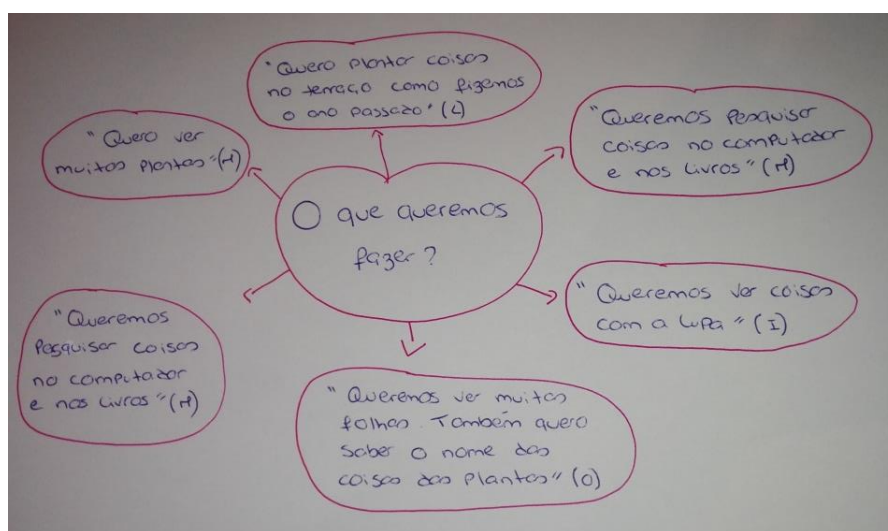 "Quero plantar coisas
no terraço como fizemos
o ano passado" (L)
"Quero ver
muitas plantas" (M)
"Queremos Pesquisar
coisas no computador
e nos Livros" (M)
O que queremos
fazer?
"Queremos ver coisas
com a Lupa" (I)
"Queremos
Pesquisar coisas
no computador
e nos Livros" (M)
"Queremos ver muitas
folhas. Também quero
saber o nome das
coisas das Plantas" (O)